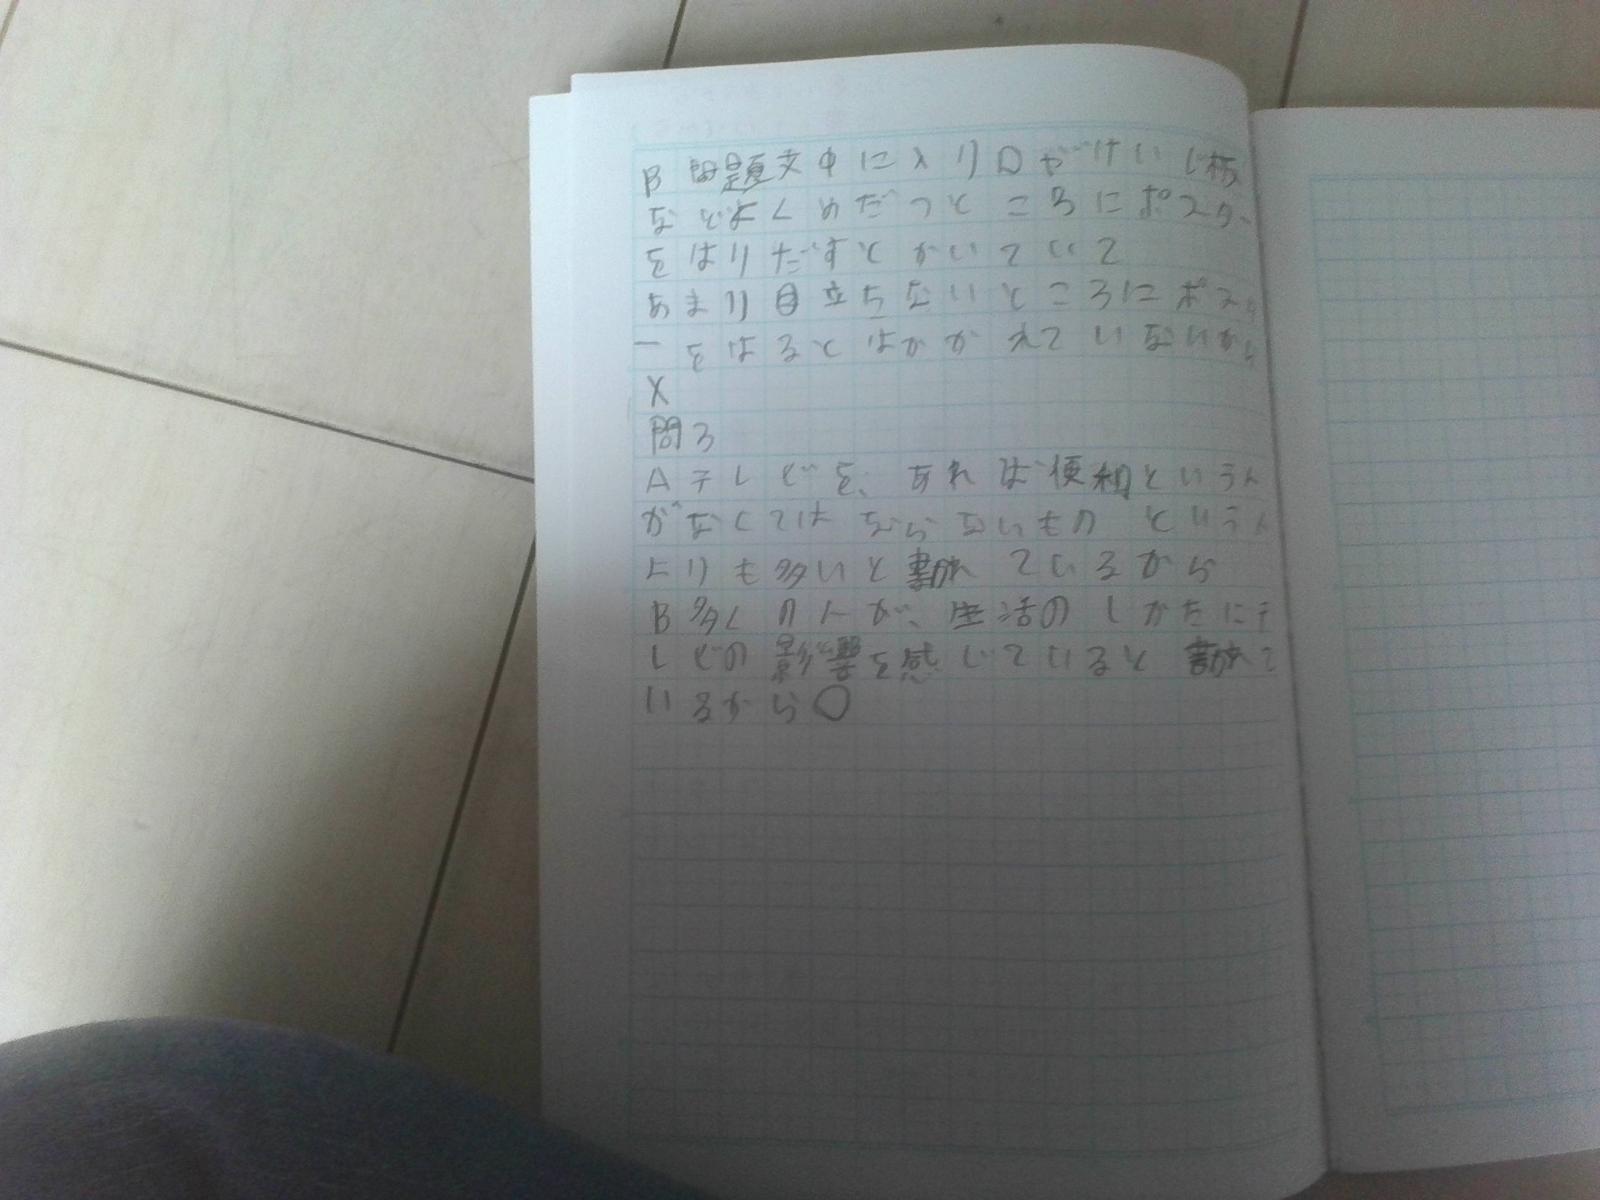 B 問題文中に入り口やけいじ板
などよくめだつところにポスター
をはりだすとかいていて
あまり目立ちないところにポスタ
ーをはるとはかかれていないから
X
問3
Aテレビを、あれば便利という人
がなくてはならないものという人
よりも多いと書かれているから
B多くの人が、生活のしかたにテ
レビの影響を感じていると書かれて
いるから〇